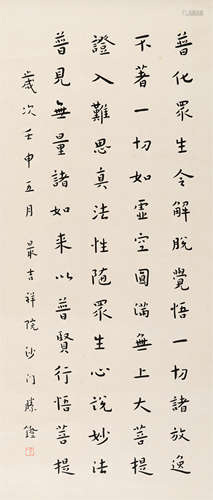 普化眾生令解脫覺悟一切諸放逸
不著一切如虛空圓滿無上大菩提
證入難思真法性隨眾生心說妙法
普見無量諸如来以普賢行悟菩提
歲次壬申五月 最吉祥院沙门